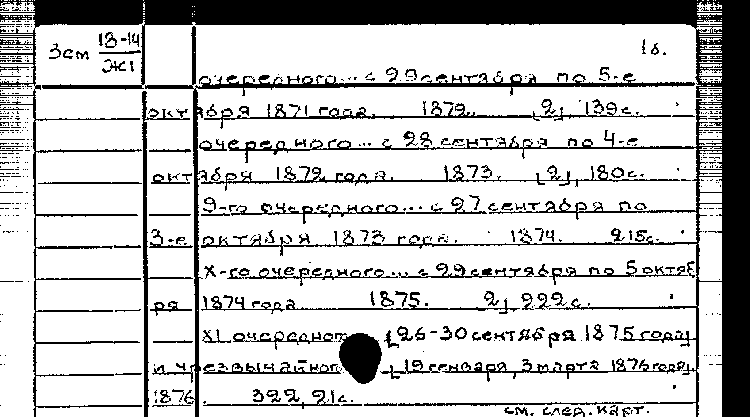 Зем 13-14
ЖI
1б.
очередного... с 29 сентября по 5-е
октября 1871 года. 1872. [2], 139 с.
очередного... с 28 сентября по 4-е
октября 1872 года. 1873. [2], 180 с.
9-го очередного... с 27 сентября по
3-е октября 1873 года. 1874. 215 с.
X-го очередного... с 29 сентября по 5 октяб
ря 1874 года 1875. 2], 222 с.
XI очередного [26-30 сентября 1875 года]
и чрезвычайного [19 генваря, 3 марта 1876 года].
1876. 322, 21 с.
см. след. карт.